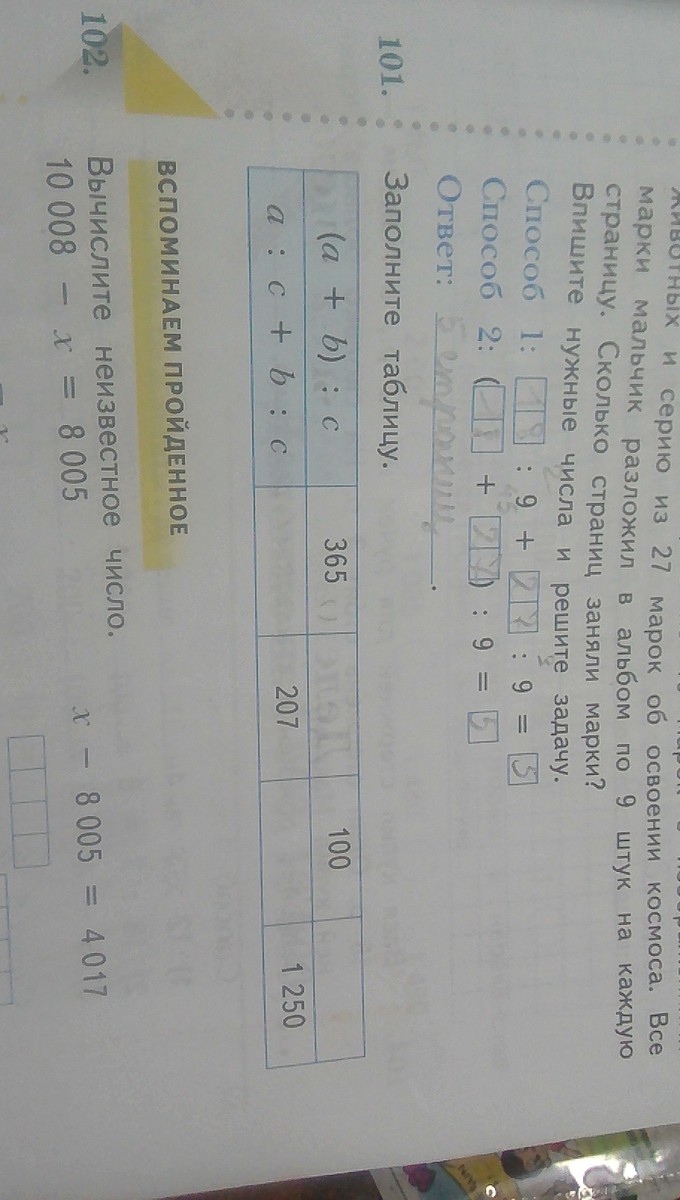 животных и серию из 27 марок об освоении космоса. Все
марки мальчик разложил в альбом по 9 штук на каждую
страницу. Сколько страниц заняли марки?
Впишите нужные числа и решите задачу.
Способ 1: 18 : 9 + 27 : 9 = 5
2 3
Способ 2: (18 + 27) : 9 = 5
45
Ответ: 5 страниц.
101. Заполните таблицу.
(a + b) : c 365 100
a : c + b : c 207 1 250
ВСПОМИНАЕМ ПРОЙДЕННОЕ
102. Вычислите неизвестное число.
10 008 − x = 8 005 x − 8 005 = 4 017